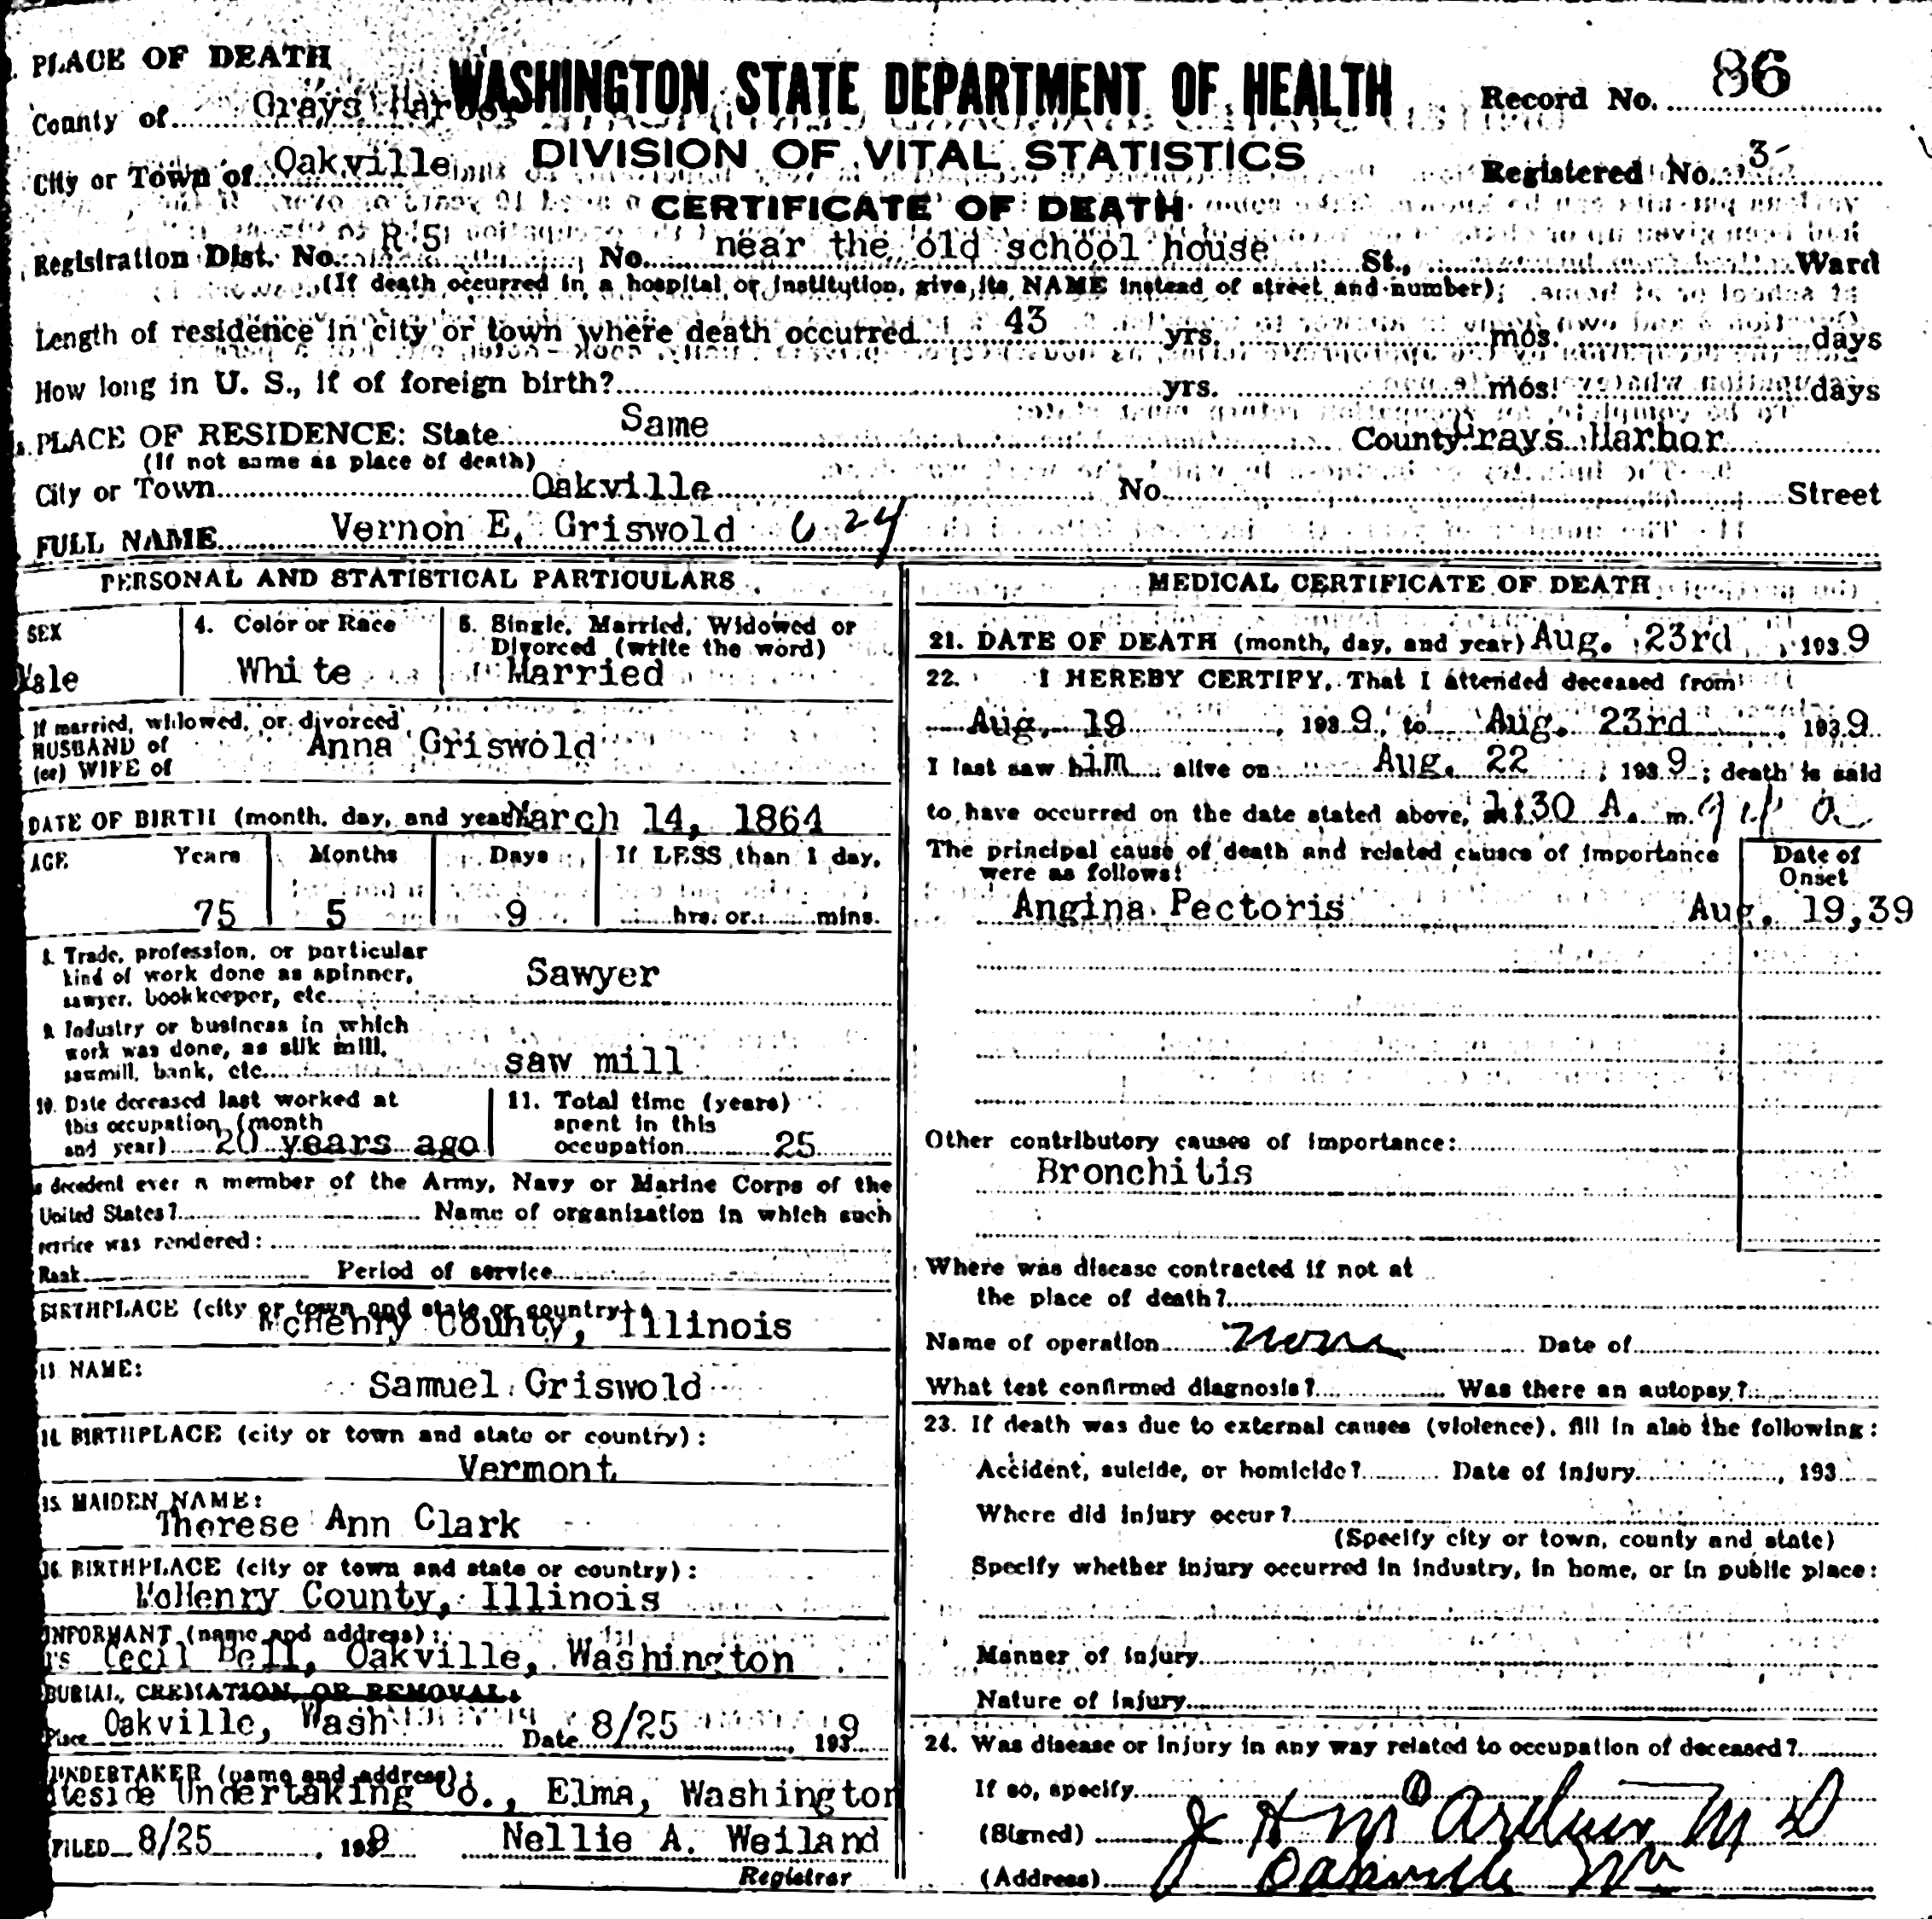 PLACE OF DEATH
WASHINGTON STATE DEPARTMENT OF HEALTH
Record No. 86
County of Grays Harbor
DIVISION OF VITAL STATISTICS
City or Town of Oakville
Registered No. 3-
CERTIFICATE OF DEATH
Registration Dist. No. R 5 No. near the old school house St., Ward
(If death occurred in a hospital or institution, give its NAME instead of street and number)
Length of residence in city or town where death occurred 43 yrs. mos. days
How long in U. S., if of foreign birth? yrs. mos. days
PLACE OF RESIDENCE: State Same County Grays Harbor
(If not same as place of death)
City or Town Oakville No. Street
FULL NAME Vernon E. Griswold 624
PERSONAL AND STATISTICAL PARTICULARS
SEX
Male
4. Color or Race
White
5. Single, Married, Widowed or
Divorced (write the word)
Married
If married, widowed, or divorced
HUSBAND of Anna Griswold
(or) WIFE of
DATE OF BIRTH (month, day, and year) March 14, 1864
AGE Years Months Days If LESS than 1 day,
75 5 9 hrs. or mins.
8. Trade, profession, or particular
kind of work done as spinner, Sawyer
sawyer, bookkeeper, etc.
9. Industry or business in which
work was done, as silk mill,
sawmill, bank, etc. saw mill
10. Date deceased last worked at
this occupation (month
and year) 20 years ago
11. Total time (years)
spent in this
occupation 25
decedent ever a member of the Army, Navy or Marine Corps of the
United States? Name of organization in which such
service was rendered:
Rank Period of service
BIRTHPLACE (city or town and state or country)
McHenry County, Illinois
13. NAME:
Samuel Griswold
14. BIRTHPLACE (city or town and state or country):
Vermont
15. MAIDEN NAME:
Therese Ann Clark
16. BIRTHPLACE (city or town and state or country):
McHenry County, Illinois
INFORMANT (name and address):
rs Cecil Bell, Oakville, Washington
BURIAL, CREMATION, OR REMOVAL:
Place Oakville, Wash Date 8/25 1939
UNDERTAKER (name and address):
teside Undertaking Co., Elma, Washington
FILED 8/25 1939 Nellie A. Weiland
Registrar
MEDICAL CERTIFICATE OF DEATH
21. DATE OF DEATH (month, day, and year) Aug. 23rd, 1939
22. I HEREBY CERTIFY, That I attended deceased from
Aug. 19, 1939, to Aug. 23rd, 1939
I last saw him alive on Aug. 22, 1939; death is said
to have occurred on the date stated above, 1:30 A. m.
The principal cause of death and related causes of importance
were as follows:
Date of
Onset
Angina Pectoris Aug. 19,39
Other contributory causes of importance:
Bronchitis
Where was disease contracted if not at
the place of death?
Name of operation None Date of
What test confirmed diagnosis? Was there an autopsy?
23. If death was due to external causes (violence), fill in also the following:
Accident, suicide, or homicide? Date of injury , 193
Where did injury occur?
(Specify city or town, county and state)
Specify whether injury occurred in industry, in home, or in public place:
Manner of injury
Nature of injury
24. Was disease or injury in any way related to occupation of deceased?
If so, specify
(Signed) J H McArthur M D
(Address) Oakville Wn